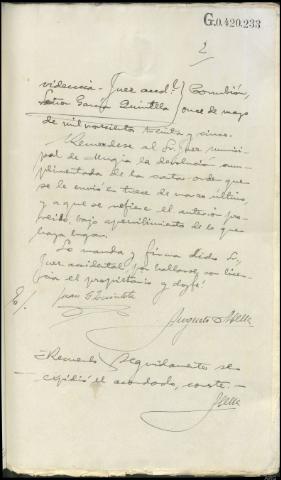 G.0.420.233
2
videncia - Juez accd.l } Corcubión,
Señor García Quintela } once de mayo
de mil novecientos treinta y cinco.
Recuérdese al Sr. Juez munici-
pal de Mugía la devolución cum-
plimentada de la carta orden que
se le envió en trece de marzo último,
y a que se refiere el anterior pro-
veído, bajo apercibimiento de lo que
haya lugar.
Lo manda y firma dicho Sr.
Juez accidental, por hallarse con licen-
cia el propietario y doyfé
E/.
Augusto
Recuerdo Seguidamente se
expidió el acordado, conste. -